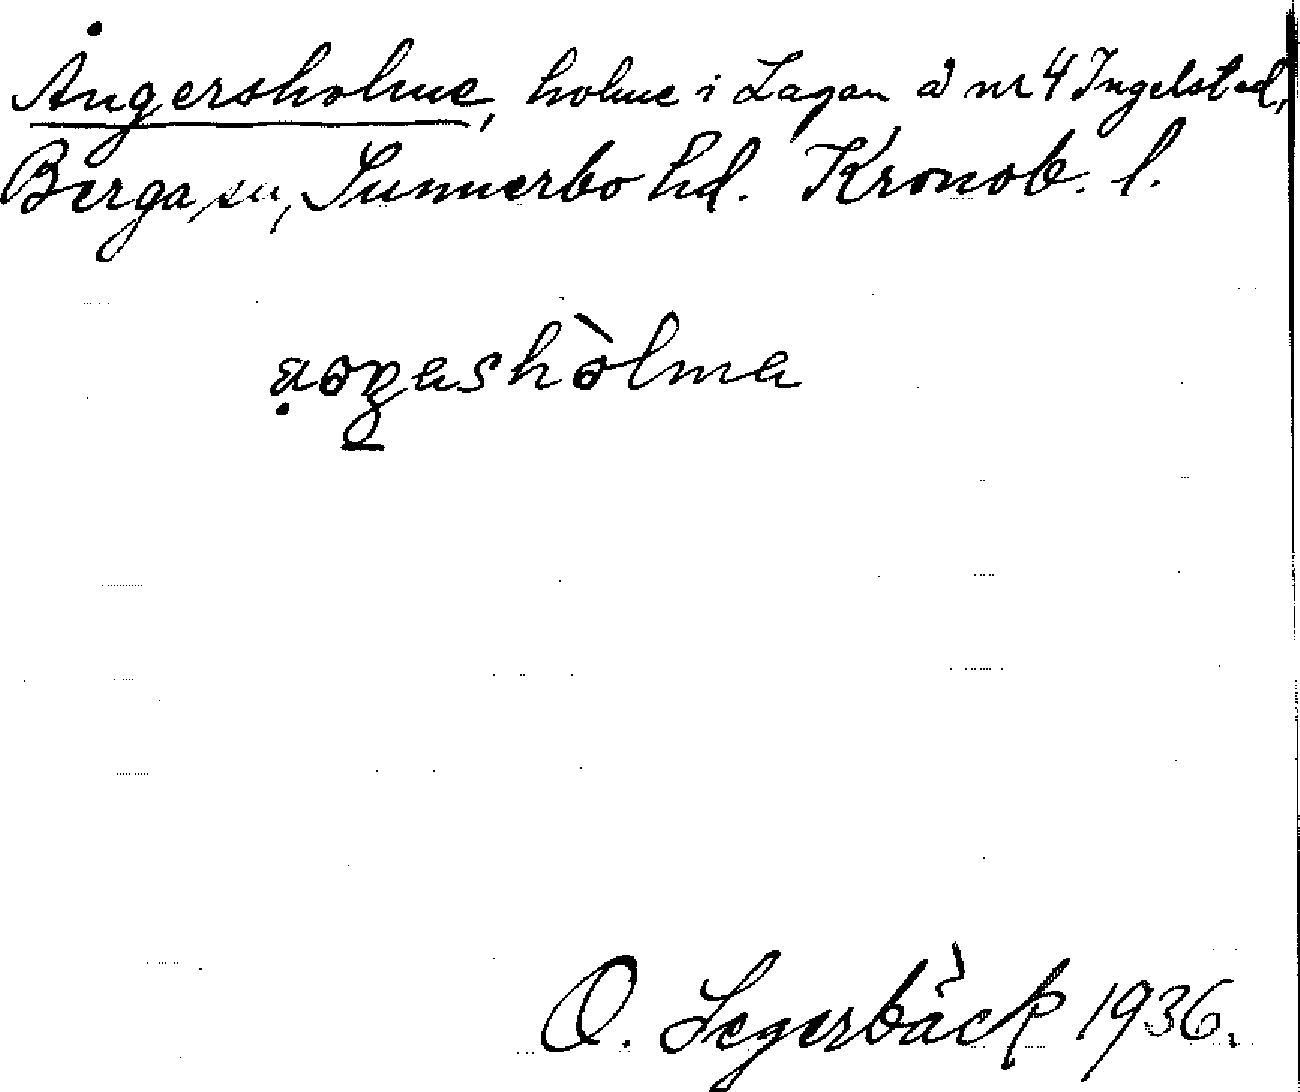 Ångersholme, holme i Lagan å nr 4 Ingelstad,
Berga sn, Sunnerbo hd. Kronob. l.
O. Segerbäck 1936.